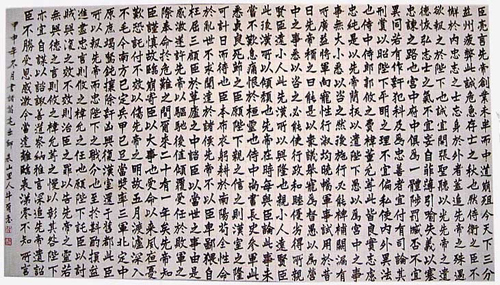 臣亮言先帝創業未半而中道崩殂今天下三分
益州疲弊此誠危急存亡之秋也然侍衛之臣不
懈於內忠志之士忘身於外者蓋追先帝之殊遇
欲報之於陛下也誠宜開張聖聽以光先帝遺
德恢弘志士之氣不宜妄自菲薄引喻失義以塞
忠諫之路也宮中府中俱為一體陟罰臧否不宜
異同若有作奸犯科及為忠善者宜付有司論其
刑賞以昭陛下平明之理不宜偏私使內外異法
也侍中侍郎郭攸之費禕董允等此皆良實志慮
忠純是以先帝簡拔以遺陛下愚以為宮中之
事無大小悉以咨之然後施行必能裨補闕漏有
所廣益將軍向寵性行淑均曉暢軍事試用於昔
日先帝稱之曰能是以眾議舉寵為督愚以為營
中之事悉以咨之必能使行陣和睦優劣得所也
親賢臣遠小人此先漢所以興隆也親小人遠賢臣
此後漢所以傾頹也先帝在時每與臣論此事未
嘗不歎息痛恨於桓靈也侍中尚書長史參軍此
悉貞良死節之臣願陛下親之信之則漢室之隆
可計日而待也臣本布衣躬耕於南陽苟全性命
於亂世不求聞達於諸侯先帝不以臣卑鄙猥自
枉屈三顧臣於草廬之中諮臣以當世之事由是
感激遂許先帝以驅馳後值傾覆受任於敗軍之
際奉命於危難之間爾來二十有一年矣先帝知
臣謹慎故臨崩寄臣以大事也受命以來夙夜憂
歎恐託付不效以傷先帝之明故五月渡瀘深入
不毛今南方已定兵甲已足當獎率三軍北定中
原庶竭駑鈍攘除奸凶興復漢室還於舊都此臣
所以報先帝而忠陛下之職分也至於斟酌損益
進盡忠言則攸之禕允之任也願陛下託臣以討
賊興復之效不效則治臣之罪以告先帝之靈若
無興德之言則責攸之禕允等之慢以彰其咎陛下
亦宜自謀以諮諏善道察納雅言深追先帝遺詔
臣不勝受恩感激今當遠離臨表涕零不知所言